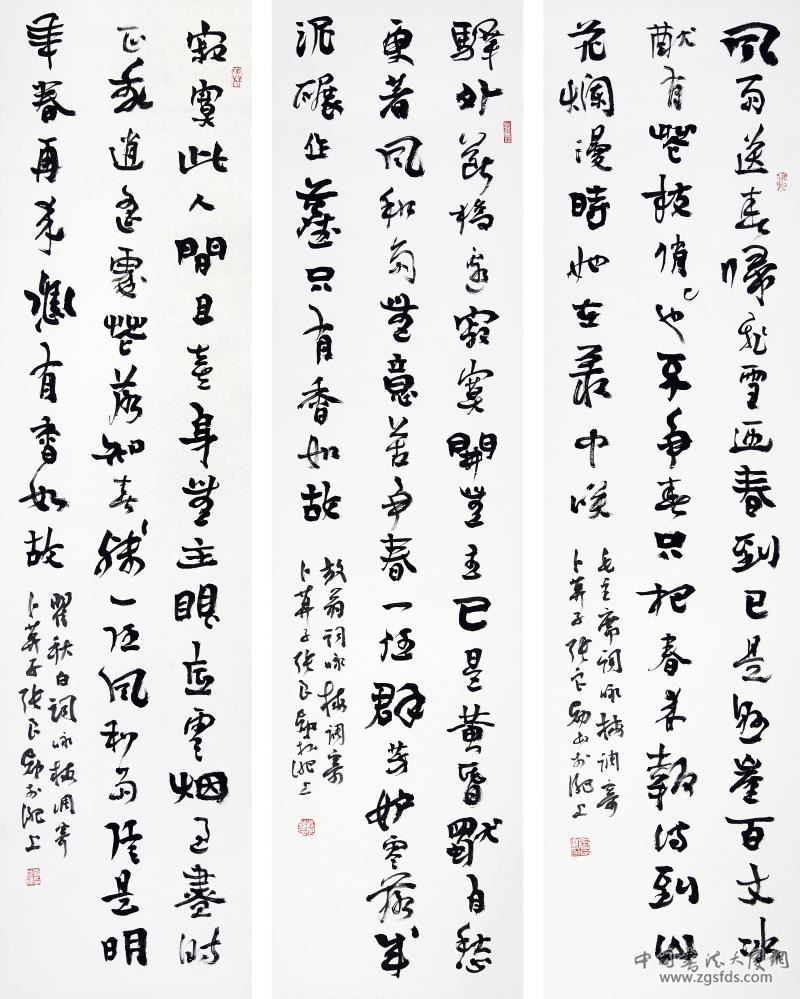 風雨送春歸飛雪迎春到已是懸崖百丈冰
猷有花枝俏〻也不爭春只把春来報待到山
花爛漫時她在叢中咲
毛主席詞咏梅調寄
卜算子張良勛書於淝上
驛外斷橋邊寂寞開無主已是黄昏獨自愁
更著風和雨無意苦爭春一任群芳妒零落成
泥碾作塵只有香如故
放翁詞咏梅調寄
卜算子張良勛於淝上
寂寞此人間且喜身無主眼底雲烟過盡時
正我逍遥處花落知春殘一任風和雨信是明
年春再来應有香如故
瞿秋白詞咏梅調寄
卜算子張良勛於淝上
中國書法大廈網
www.zgsfds.com